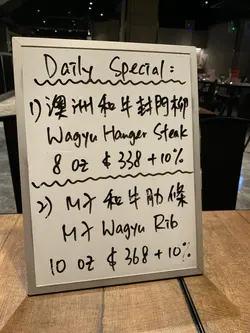 Daily Special:
1) 澳洲和牛封門柳
Wagyu Hanger Steak
8 oz $338 +10%
2) M7 和牛肋條
M7 Wagyu Rib
10 oz $368 +10%